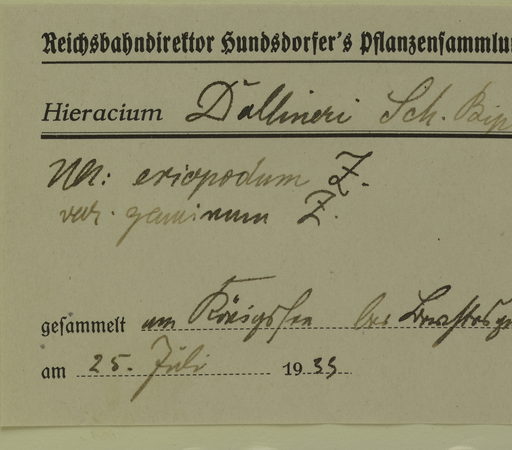 Reichsbahndirektor Hundsdorfer's Pflanzensammlu
Hieracium Dollineri Sch. Bip
Ua: eriopodum Z.
var. genuinum Z.
gesammelt am Königssee bei
am 25. Juli 1935